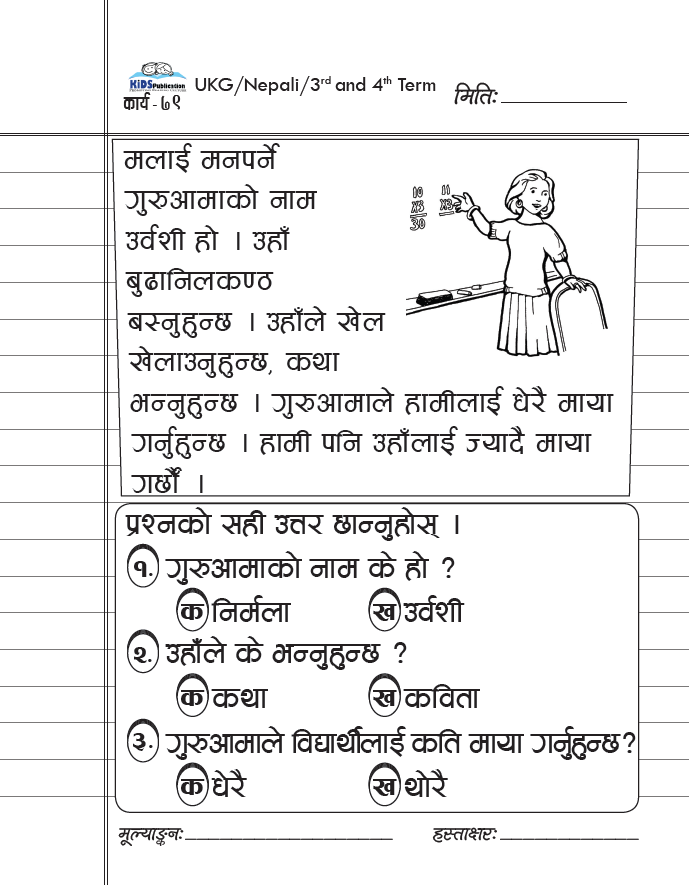 KiDSPublication
UKG/Nepali/3rd and 4th Term
मितिः
कार्य - ७९
मलाई मनपर्ने
गुरुआमाको नाम
उर्वशी हो । उहाँ
बुढानिलकण्ठ
बस्नुहुन्छ । उहाँले खेल
खेलाउनुहुन्छ, कथा
भन्नुहुन्छ । गुरुआमाले हामीलाई धेरै माया
गर्नुहुन्छ । हामी पनि उहाँलाई ज्यादै माया
गर्छौं ।
10 11
X3 X3
30
प्रश्नको सही उत्तर छान्नुहोस् ।
१. गुरुआमाको नाम के हो ?
क निर्मला ख उर्वशी
२. उहाँले के भन्नुहुन्छ ?
क कथा ख कविता
३. गुरुआमाले विद्यार्थीलाई कति माया गर्नुहुन्छ?
क धेरै ख थोरै
मूल्याङ्कनः हस्ताक्षरः